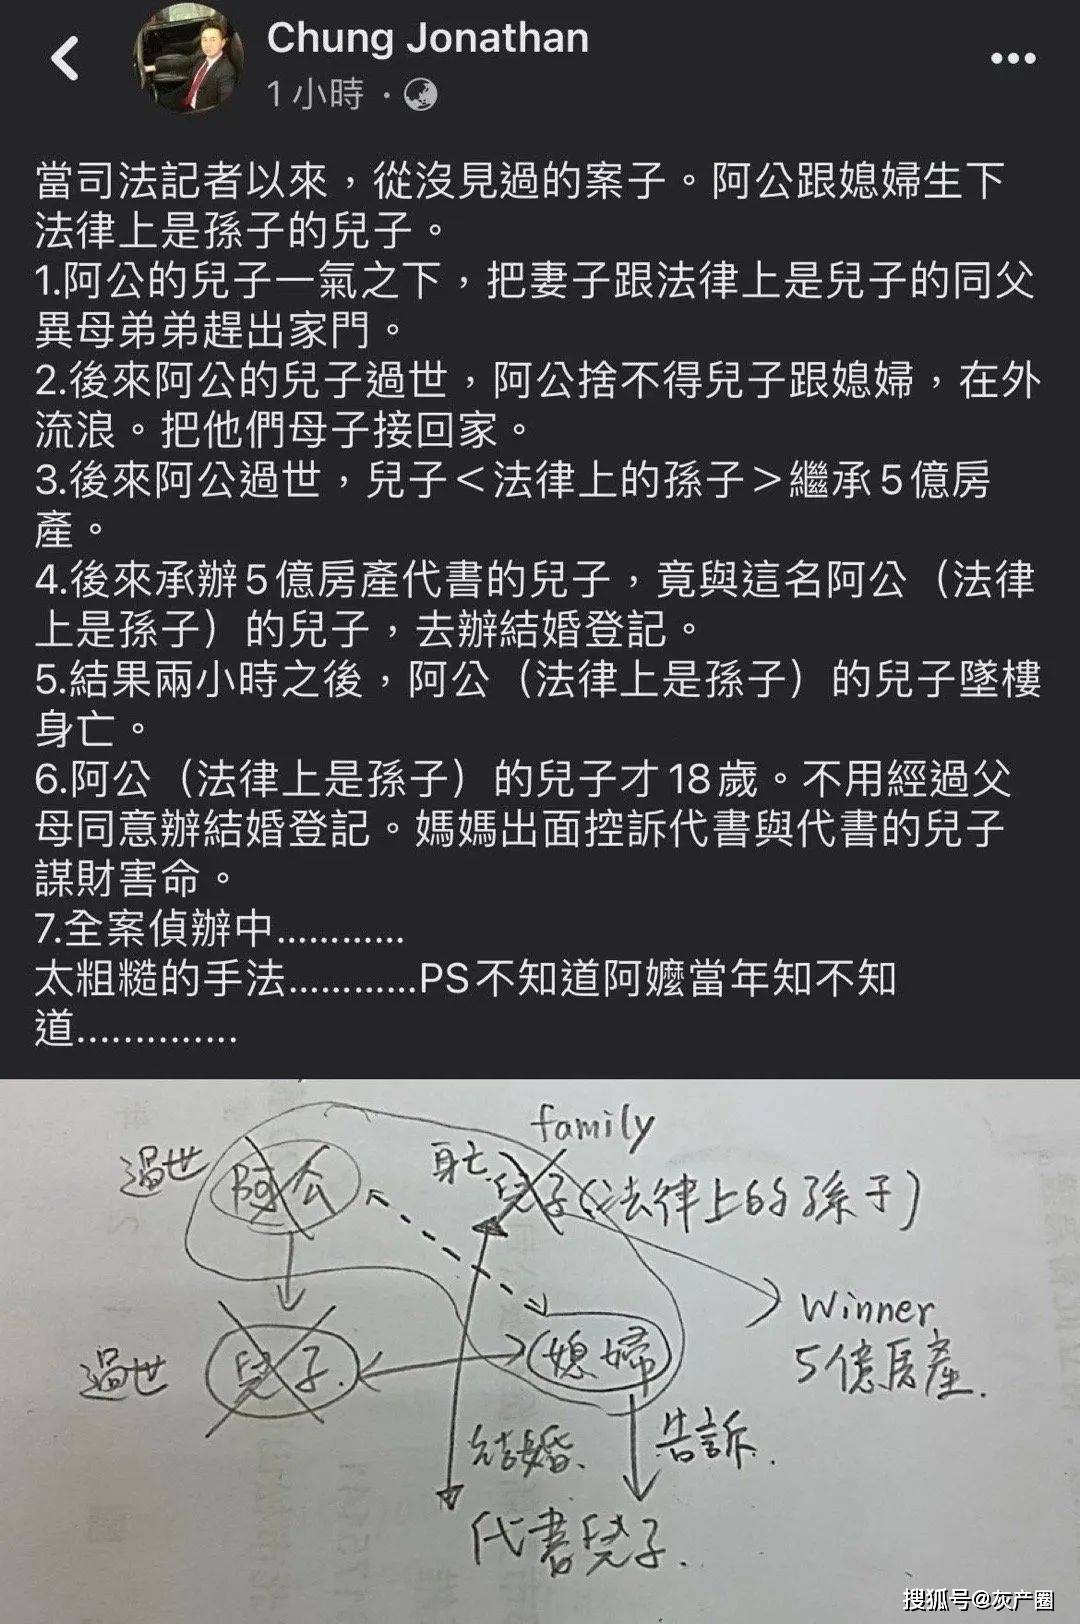 Chung Jonathan
1 小時 ·
當司法記者以來，從沒見過的案子。阿公跟媳婦生下
法律上是孫子的兒子。
1.阿公的兒子一氣之下，把妻子跟法律上是兒子的同父
異母弟弟趕出家門。
2.後來阿公的兒子過世，阿公捨不得兒子跟媳婦，在外
流浪。把他們母子接回家。
3.後來阿公過世，兒子＜法律上的孫子＞繼承5億房
產。
4.後來承辦5億房產代書的兒子，竟與這名阿公（法律
上是孫子）的兒子，去辦結婚登記。
5.結果兩小時之後，阿公（法律上是孫子）的兒子墜樓
身亡。
6.阿公（法律上是孫子）的兒子才18歲。不用經過父
母同意辦結婚登記。媽媽出面控訴代書與代書的兒子
謀財害命。
7.全案偵辦中............
太粗糙的手法............PS不知道阿嬤當年知不知
道..............
family
過世 阿公 身亡 兒子(法律上的孫子)
winner
過世 兒子 媳婦 5億房產.
結婚. 告訴.
代書兒子.
搜狐号@灰产圈